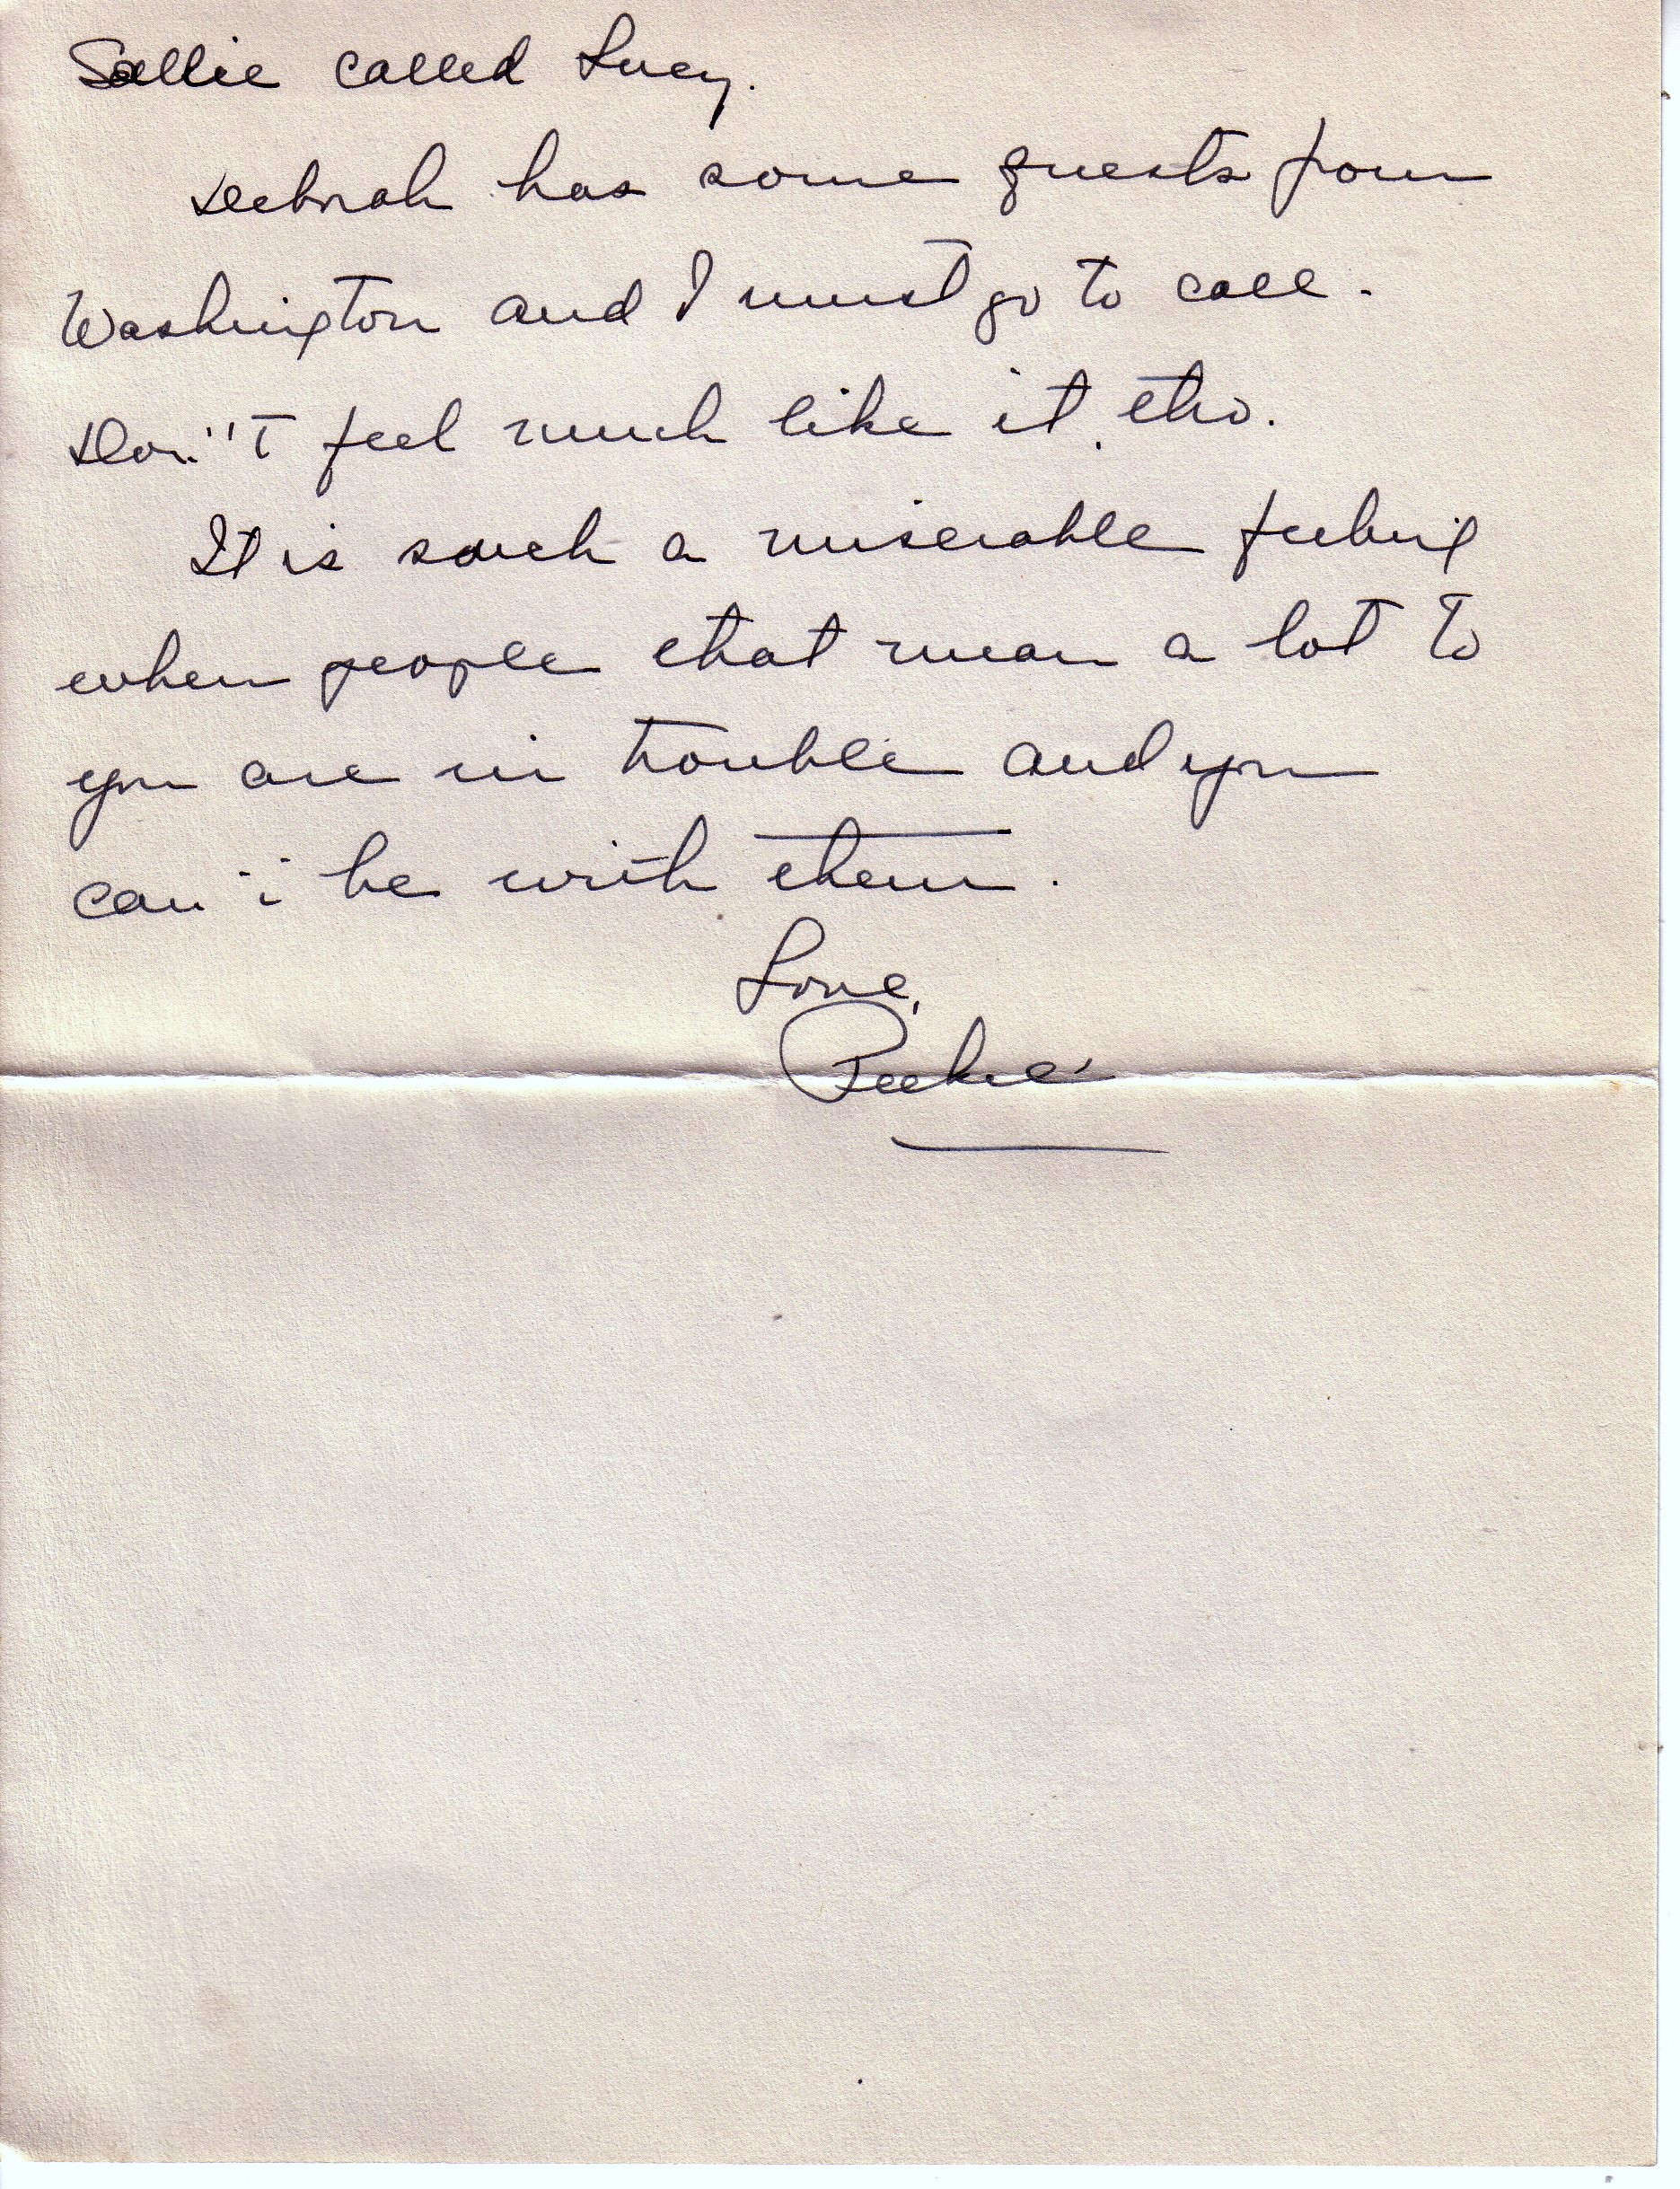 Sallie called Lucy.
Deborah has some guests from
Washington and I must go to call.
Don't feel much like it, tho.
It is such a miserable feeling
when people that mean a lot to
you are in trouble and you
can't be with them.
Love,